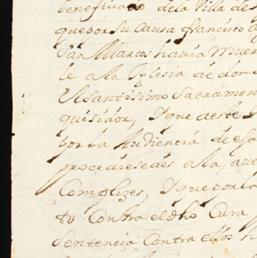 benefiziado dela Villa de
que por su causa francisco
San Marcos havia muer
le a la Iglesia de don
el Santissimo Sacramen
quisidor, y que deste
por la Audiencia de esa
procediesedes a la ave
Complizes, y que por la
to Contra el dho Cura
Sentencia Contra ellos